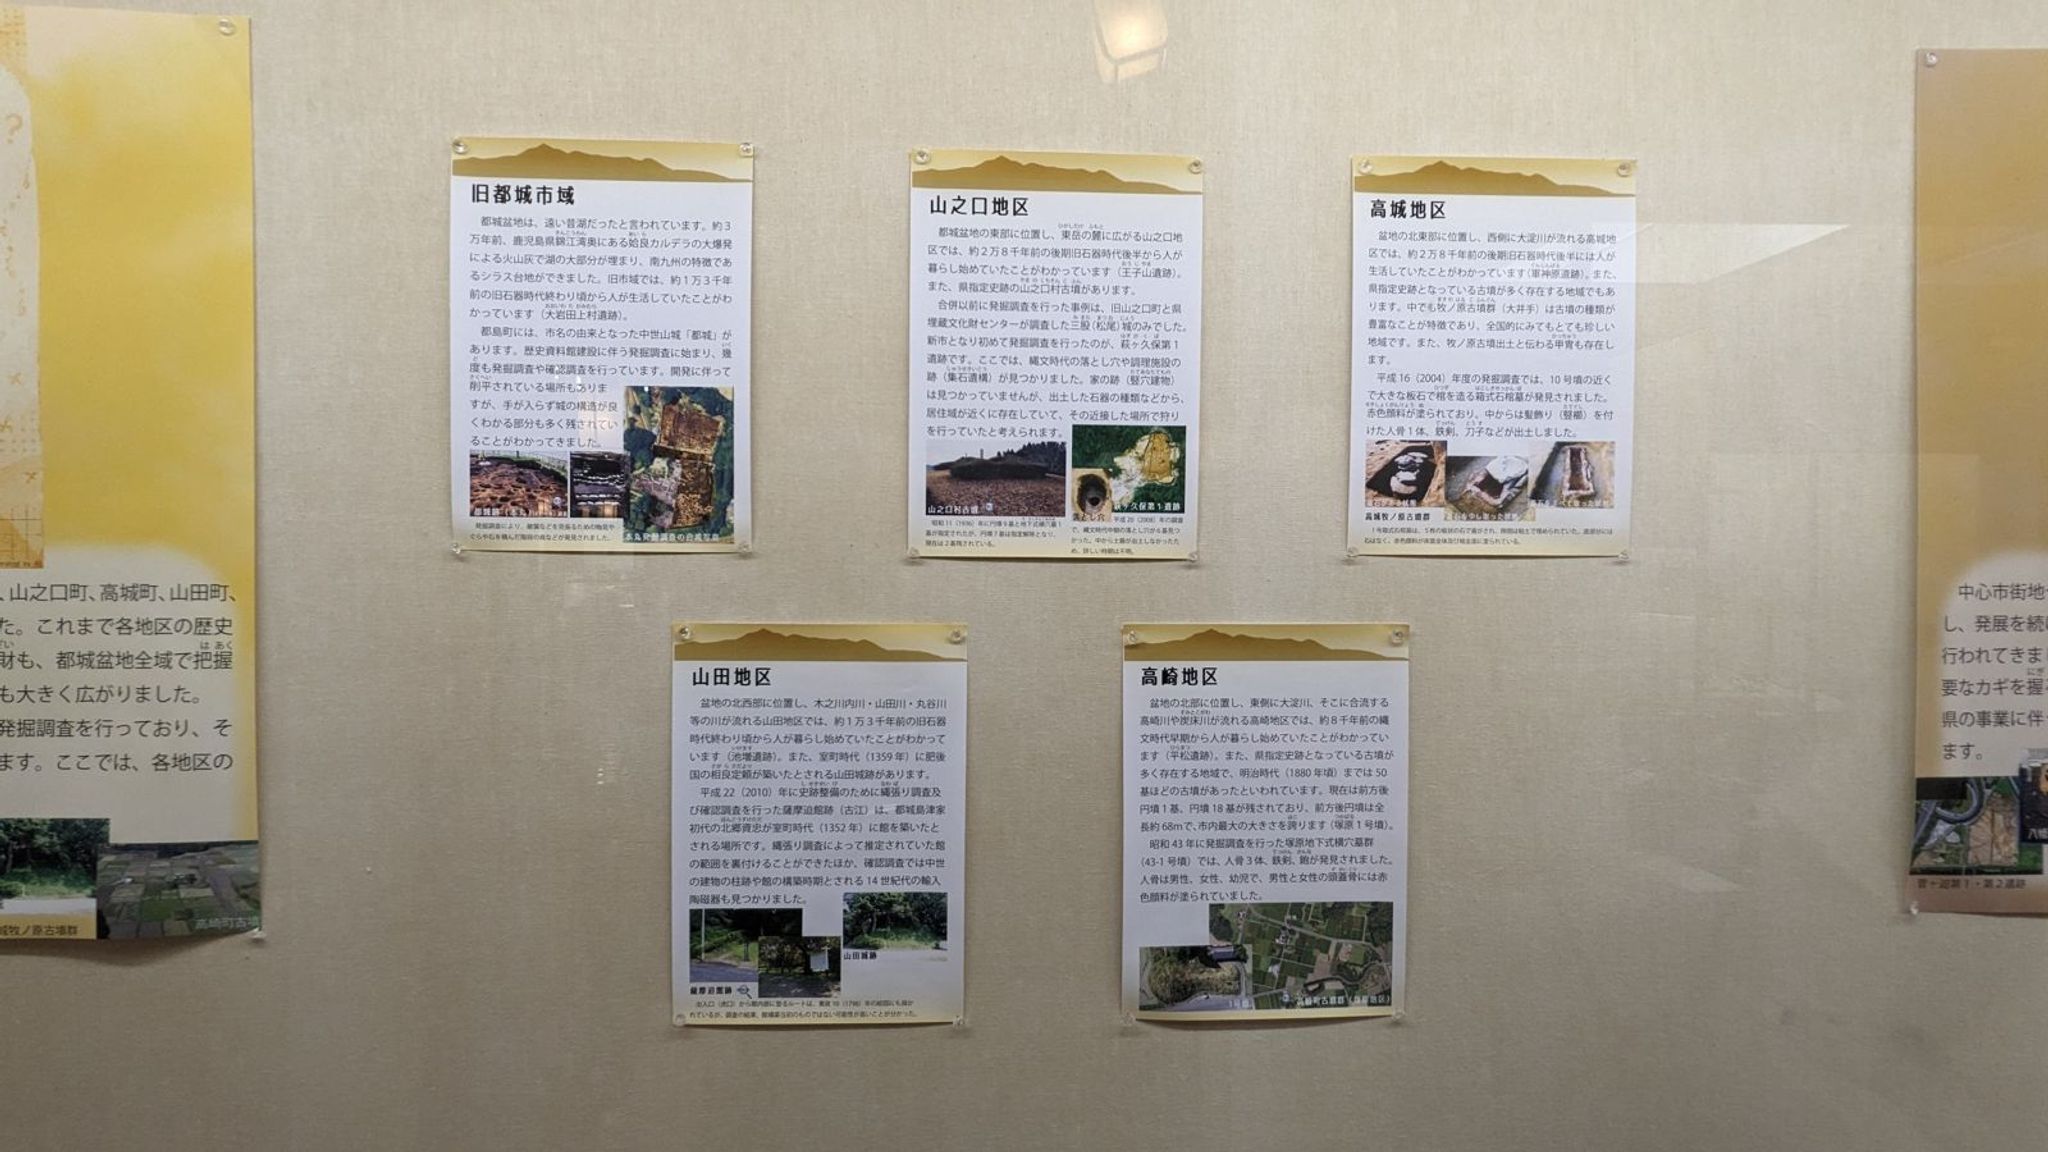 旧都城市域
都城盆地は、遠い昔湖だったと言われています。約3
万年前、鹿児島県錦江湾奥にある姶良カルデラの大爆発
による火山灰で湖の大部分が埋まり、南九州の特徴であ
るシラス台地ができました。旧市域では、約1万3千年
前の旧石器時代終わり頃から人が生活していたことがわ
かっています（大岩田上村遺跡）。
都島町には、市名の由来となった中世山城「都城」が
あります。歴史資料館建設に伴う発掘調査に始まり、幾
度も発掘調査や確認調査を行っています。開発に伴って
削平されている場所もありま
すが、手が入らず城の構造が良
くわかる部分も多く残されてい
ることがわかってきました。
都城跡（本丸
本丸発掘調査の合成写真
山之口地区
都城盆地の東部に位置し、東岳の麓に広がる山之口地
区では、約2万8千年前の後期旧石器時代後半から人が
暮らし始めていたことがわかっています（王子山遺跡）。
また、県指定史跡の山之口村古墳があります。
合併以前に発掘調査を行った事例は、旧山之口町と県
埋蔵文化財センターが調査した三股（松尾）城のみでした。
新市となり初めて発掘調査を行ったのが、萩ヶ久保第1
遺跡です。ここでは、縄文時代の落とし穴や調理施設の
跡（集石遺構）が見つかりました。家の跡（竪穴建物）
は見つかっていませんが、出土した石器の種類などから、
居住域が近くに存在していて、その近接した場所で狩り
を行っていたと考えられます。
山之口村古墳
落とし穴
萩ヶ久保第1遺跡
昭和11（1936）年に円墳9基と地下式横穴墓1
基が指定されたが、円墳7基は指定解除となり、
現在は2基残されている。
平成20（2008）年の調査
で、縄文時代中期の落とし穴が6基見つ
かった。中から土器が出土しなかったた
め、詳しい時期は不明。
高城地区
盆地の北東部に位置し、西側に大淀川が流れる高城地
区では、約2万8千年前の後期旧石器時代後半には人が
生活していたことがわかっています（軍神原遺跡）。また、
県指定史跡となっている古墳が多く存在する地域でもあ
ります。中でも牧ノ原古墳群（大井手）は古墳の種類が
豊富なことが特徴であり、全国的にみてもとても珍しい
地域です。また、牧ノ原古墳出土と伝わる甲冑も存在し
ます。
平成16（2004）年度の発掘調査では、10号墳の近く
で大きな板石で棺を造る箱式石棺墓が発見されました。
赤色顔料が塗られており、中からは髪飾り（竪櫛）を付
けた人骨1体、鉄剣、刀子などが出土しました。
高城牧ノ原古墳群
山田地区
盆地の北西部に位置し、木之川内川・山田川・丸谷川
等の川が流れる山田地区では、約1万3千年前の旧石器
時代終わり頃から人が暮らし始めていたことがわかって
います（池増遺跡）。また、室町時代（1359年）に肥後
国の相良定頼が築いたとされる山田城跡があります。
平成22（2010）年に史跡整備のために縄張り調査及
び確認調査を行った薩摩迫館跡（古江）は、都城島津家
初代の北郷資忠が室町時代（1352年）に館を築いたと
される場所です。縄張り調査によって推定されていた館
の範囲を裏付けることができたほか、確認調査では中世
の建物の柱跡や館の構築時期とされる14世紀代の輸入
陶磁器も見つかりました。
山田城跡
薩摩迫館跡
高崎地区
盆地の北部に位置し、東側に大淀川、そこに合流する
高崎川や炭床川が流れる高崎地区では、約8千年前の縄
文時代早期から人が暮らし始めていたことがわかってい
ます（平松遺跡）。また、県指定史跡となっている古墳が
多く存在する地域で、明治時代（1880年頃）までは50
基ほどの古墳があったといわれています。現在は前方後
円墳1基、円墳18基が残されており、前方後円墳は全
長約68mで、市内最大の大きさを誇ります（塚原1号墳）。
昭和43年に発掘調査を行った塚原地下式横穴墓群
（43-1号墳）では、人骨3体、鉄剣、鉇が発見されました。
人骨は男性、女性、幼児で、男性と女性の頭蓋骨には赤
色顔料が塗られていました。
1号墳
高崎町古墳群（塚原地区）
、山之口町、高城町、山田町、
た。これまで各地区の歴史
財も、都城盆地全域で把握
も大きく広がりました。
発掘調査を行っており、そ
ます。ここでは、各地区の
城牧ノ原古墳群
高崎町古墳
中心市街地
し、発展を続
行われてきま
要なカギを握
県の事業に伴
ます。